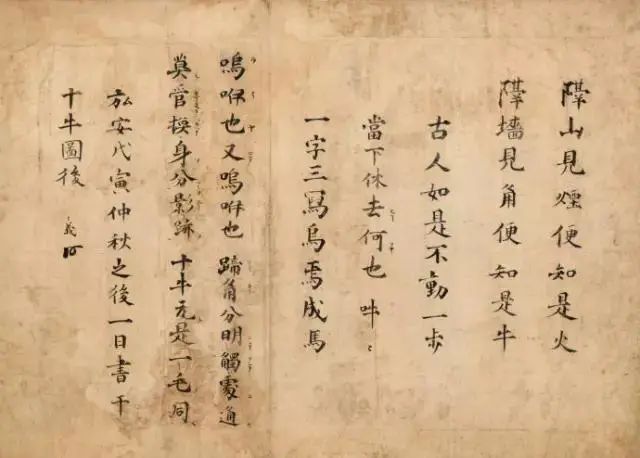 隔山見煙便知是火
隔墻見角便知是牛
古人如是不動一歩
當下休去何也 吽〻
一字三冩烏焉成馬
嗚咿也又嗚咿也 蹄角分明觸處通
莫管換身分影跡 十牛元是一毛同
弘安戊寅仲秋之後一日書于
十牛圖後